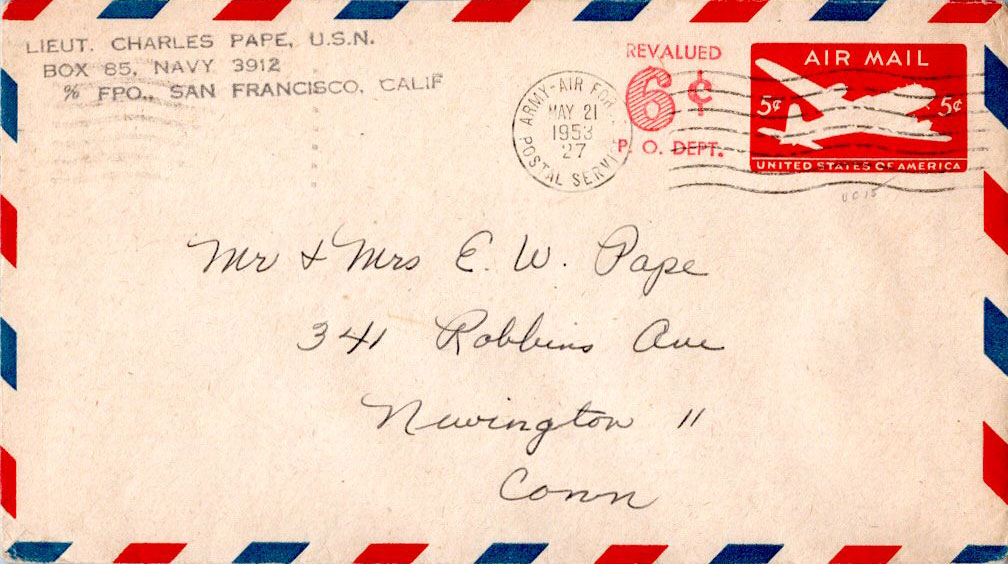 LIEUT. CHARLES PAPE, U.S.N.
BOX 85, NAVY 3912
% FPO., SAN FRANCISCO, CALIF
ARMY-AIR FOR
MAY 21
1953
27
POSTAL SERVI
REVALUED
6¢
P. O. DEPT.
AIR MAIL
5¢ 5¢
UNITED STATES OF AMERICA
UC15
Mr & Mrs E. W. Pape
341 Robbins Ave
Newington 11
Conn